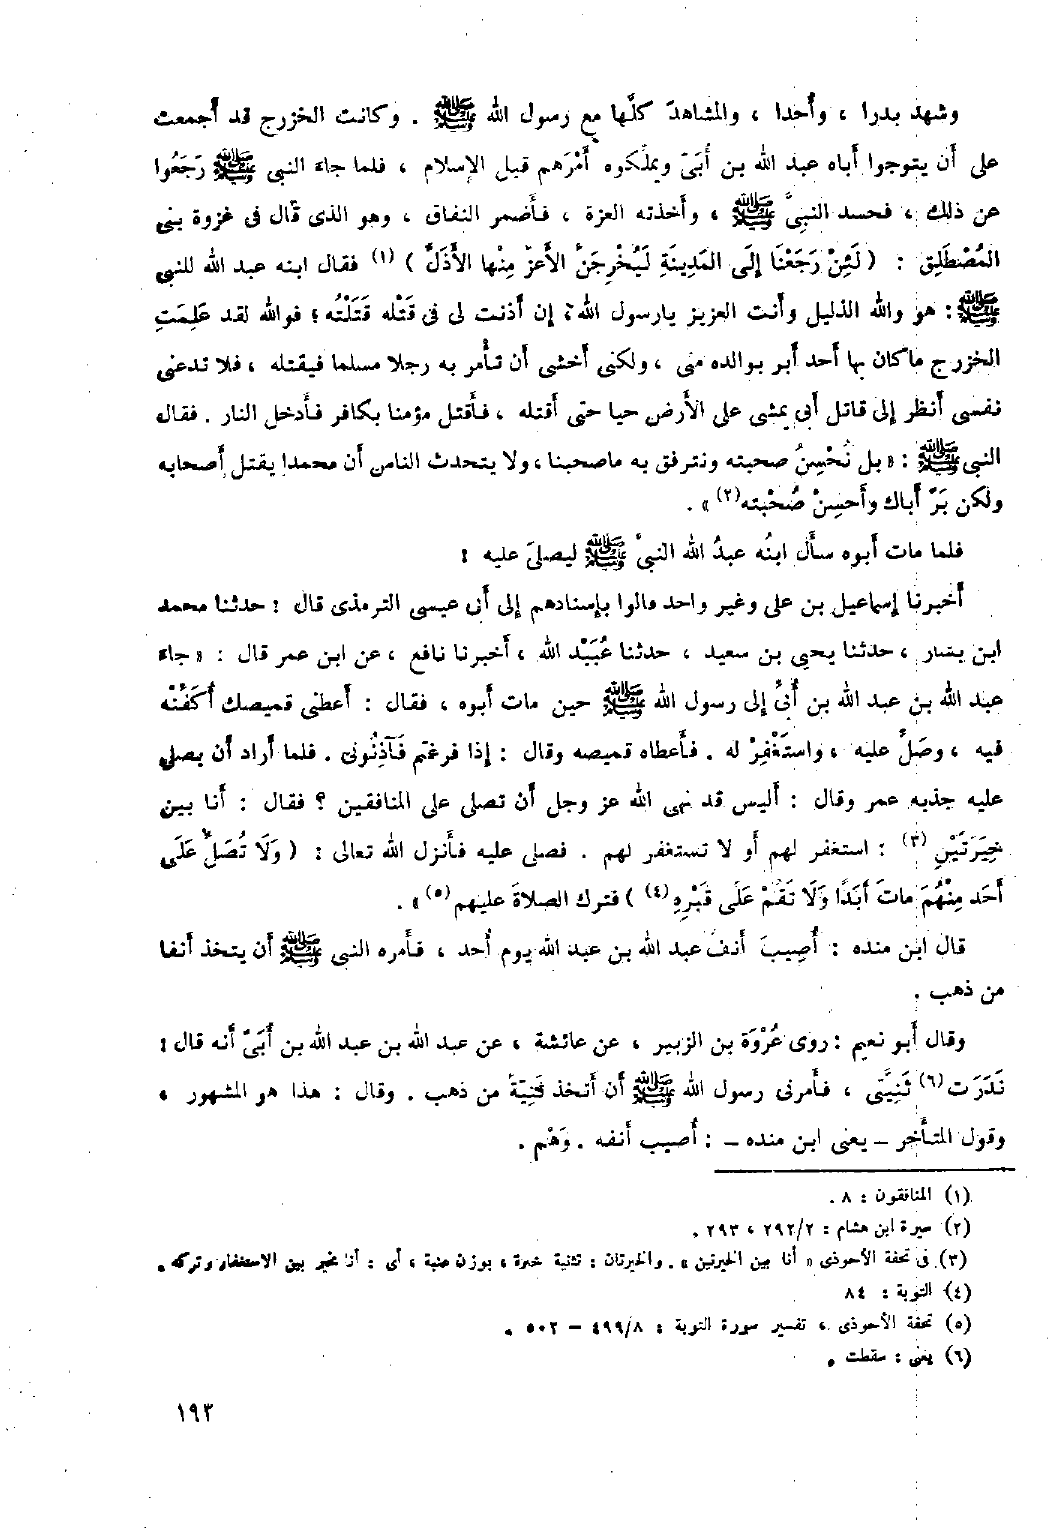 وشهد بدرا ، وأُحدا ، والمشاهدَ كلَّها مع رسول الله ﷺ . وكانت الخزرج قد أجمعت
على أن يتوجوا أباه عبد الله بن أُبَىّ ويملّكوه أَمْرَهم قبل الإسلام ، فلما جاءَ النبى ﷺ رَجَعُوا
عن ذلك ، فحسد النبىَّ ﷺ ، وأخذته العزة ، فأضمر النفاق ، وهو الذى قال فى غزوة بنى
المُصْطَلِق : ( لَئِنْ رَجَعْنَا إِلَى المَدِينَةِ لَيُخْرِجَنَّ الأَعزّ مِنْها الأَذَلَّ ) (١) فقال ابنه عبد الله للنبى
ﷺ : هو والله الذليل وأنت العزيز يارسول الله ، إن أذنت لى فى قَتْله قَتَلْتُه ؛ فوالله لقد عَلِمَتِ
الخزرج ماكان بها أحد أبر بوالده منى ، ولكنى أخشى أن تأْمر به رجلا مسلما فيقتله ، فلا تدعنى
نفسى أنظر إلى قاتل أبى يمشى على الأَرض حيا حتى أقتله ، فأقتل مؤمنا بكافر فأدخل النار . فقال
النبى ﷺ : « بل نُحْسِنُ صحبته ونترفق به ماصحبنا ، ولا يتحدث الناس أن محمدا يقتل أصحابه
ولكن بَرّ أباك وأَحسِنْ صُحْبته (٢) » .
فلما مات أبوه سأل ابنُه عبدُ الله النبىَّ ﷺ ليصلىَ عليه :
أخبرنا إسماعيل بن على وغير واحد قالوا بإسنادهم إلى أبى عيسى الترمذى قال : حدثنا محمد
ابن بشار ، حدثنا يحيى بن سعيد ، حدثنا عُبَيْد الله ، أخبرنا نافع ، عن ابن عمر قال : « جاءَ
عبد الله بن عبد الله بن أُبىٍّ إلى رسول الله ﷺ حين مات أبوه ، فقال : أعطنى قميصك أُكَفِّنْه
فيه ، وصَلِّ عليه ، واستَغْفِرْ له . فأعطاه قميصه وقال : إذا فرغتم فَآذِنُونى . فلما أراد أن يصلى
عليه جذبه عمر وقال : أليس قد نهى الله عز وجل أن تصلى على المنافقين ؟ فقال : أنا بين
خِيَرَتَيْنِ (٣) : استغفر لهم أو لا تستغفر لهم . فصلى عليه فأنزل الله تعالى : ( وَلَا تُصَلِّ عَلَى
أَحَد مِنْهُمْ مَاتَ أَبَدًا وَلَا تَقُمْ عَلَى قَبْرِهِ (٤) ) فترك الصلاةَ عليهم (٥) » .
قال ابن منده : أُصِيبَ أنفُ عبد الله بن عبد الله يوم أُحد ، فأمره النبى ﷺ أن يتخذ أنفا
من ذهب .
وقال أبو نعيم : روى عُرْوَة بن الزبير ، عن عائشة ، عن عبد الله بن عبد الله بن أُبَىّ أنه قال :
نَدَرَت (٦) ثَنِيَّتى ، فأمرنى رسول الله ﷺ أن أتخذ ثَنِيّةً من ذهب . وقال : هذا هو المشهور ،
وقول المتأَخر – يعنى ابن منده – : أُصيب أنفه . وَهْم .
(١) المنافقون : ٨ .
(٢) سيرة ابن هشام : ٢٩٢/٢ ، ٢٩٣ .
(٣) فى تحفة الأحوذى « أنا بين الخيرتين » . والخيرتان : تثنية خيرة ، بوزن عنبة ، أى : أنا مخير بين الاستغفار وتركه .
(٤) التوبة : ٨٤
(٥) تحفة الأحوذى ، تفسير سورة التوبة : ٤٩٩/٨ – ٥٠٢ .
(٦) يعنى : سقطت .
١٩٣